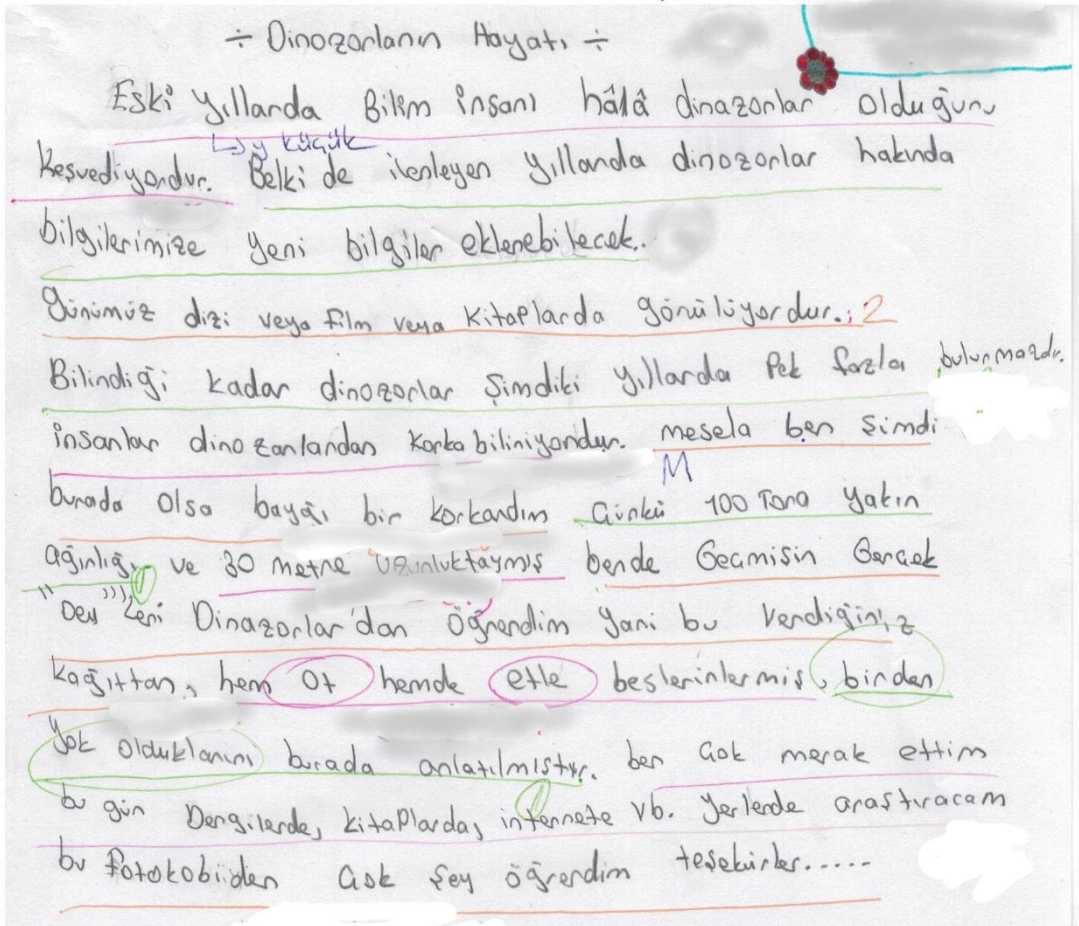 ÷ Dinozorların Hayatı ÷
Eski yıllarda Bilim insanı hâlâ dinazorlar olduğunu
↳ y küçük
keşvediyordur. Belki de ilerleyen yıllarda dinozorlar hakında
bilgilerimize yeni bilgiler eklenebilecek..
günümüz dizi veya film veya kitaplarda görülüyordur.; 2
Bilindiği kadar dinozorlar şimdiki yıllarda Pek fazla bulunmazdı.
insanlar dinozarlardan korka biliniyordur. mesela ben şimdi
M
burada Olsa bayağı bir korkardım Çünkü 100 Tona yakın
ağırlığı ve 30 metre uzunluktaymış bende Geçmişin Gerçek
"Dev" leri Dinazorlar'dan Öğrendim Yani bu Verdiğiniz
kağıttan, hem Ot hemde etle beslerinlermiş, birden
Yok Olduklarını burada anlatılmıştır. ben çok merak ettim
bu gün Dergilerde, kitaplarda, internete vb. Yerlerde araştıracam
bu fotokobiiden çok şey öğrendim teşekürler.....